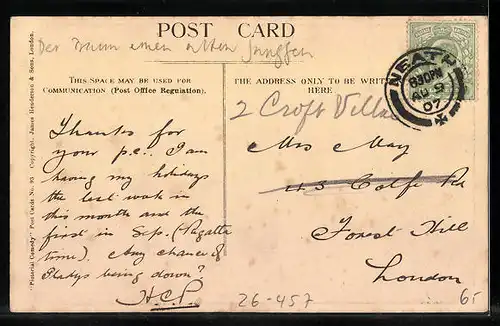 POST CARD
Der Traum einen alten Jungfer
THIS SPACE MAY BE USED FOR
COMMUNICATION (Post Office Regulation).
THE ADDRESS ONLY TO BE WRITTEN
HERE
"Pictorial Comedy" Post Cards No. 95 Copyright. James Henderson & Sons, London.
NEATH
8 30 PM
AU 9
07
2 Croft Villas
Thanks for
your p.c. I am
having my holidays
the last week in
this month and the
first in Sep. (Regatta
time). Any chance of
Gladys being down?
H.C.P.
Mrs May
43 Colfe Rd
Forest Hill
London
26-457
6.-